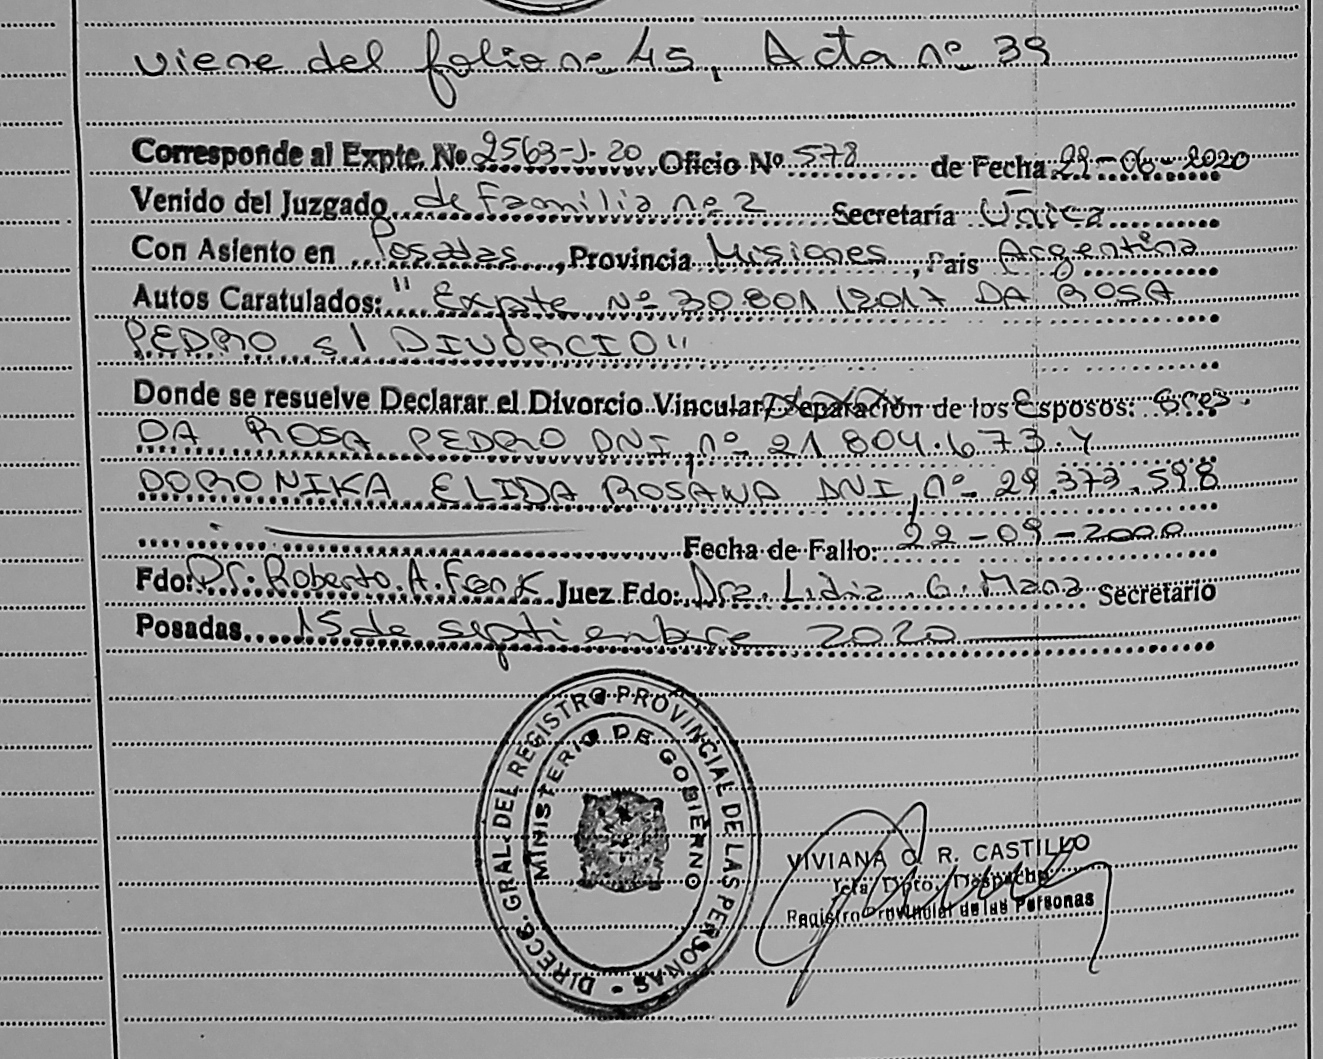 viene del folio nº 45, Acta nº 39
Corresponde al Expte. Nº 2563-J-20 Oficio Nº 578 de Fecha 29-06-2020
Venido del Juzgado de Familia nº 2 Secretaría Única
Con Asiento en Posadas, Provincia Misiones, Pais Argentina
Autos Caratulados: "Expte Nº 30801/2017 DA ROSA
PEDRO s/ DIVORCIO"
Donde se resuelve Declarar el Divorcio Vincular/Separación de los Esposos: Sres.
DA ROSA PEDRO DNI, nº 21.804.673 Y
DORONIKA ELIDA ROSANA DNI, nº 29.373.598
Fecha de Fallo: 22-09-2000
Fdo: Dr. Roberto. A. Fenk Juez Fdo: Dra. Lidia G. Mana Secretario
Posadas 15 de septiembre 2020
DIRECC. GRAL. DEL REGISTRO PROVINCIAL DE LAS PERSONAS
MINISTERIO DE GOBIERNO
VIVIANA C. R. CASTILLO
Dpto. Despacho
Registro Provincial de las Personas